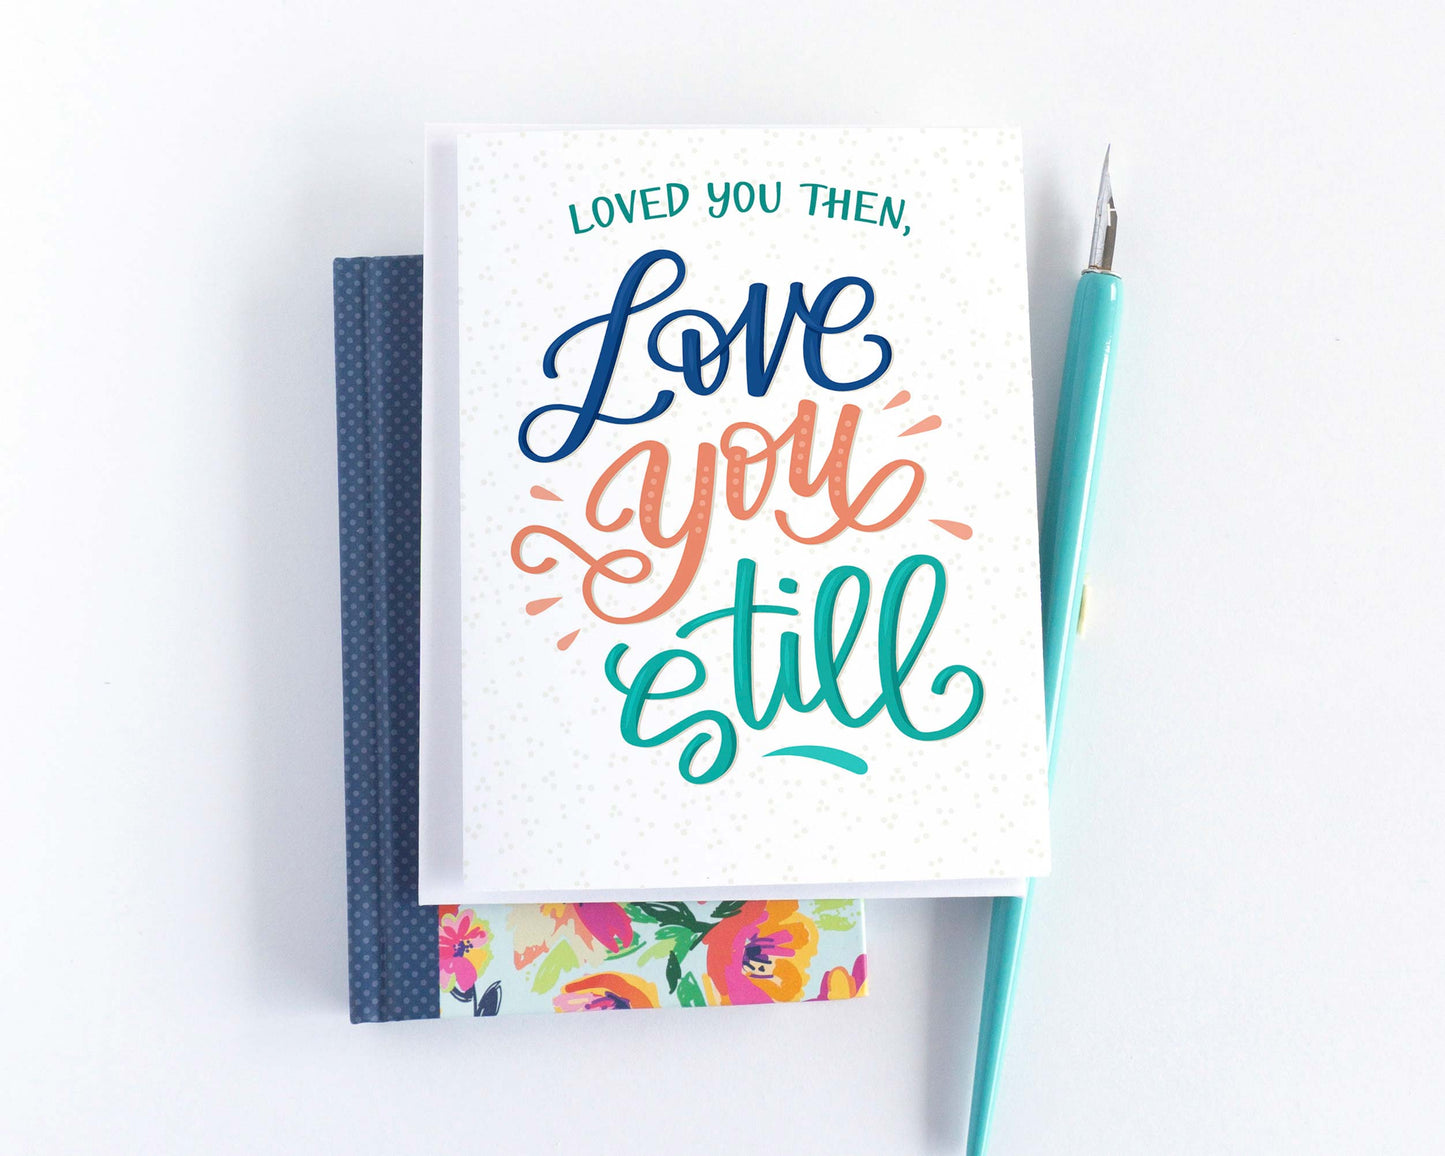 LOVED YOU THEN,
Love
you
Still